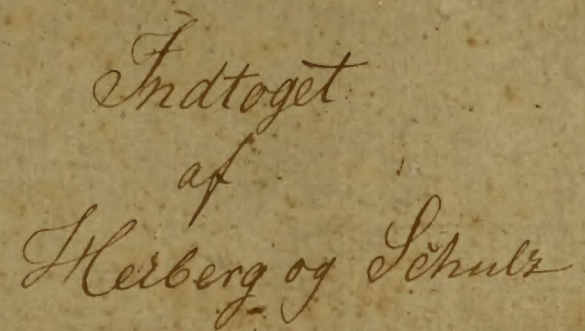 Indtoget
af
Herberg og Schulz